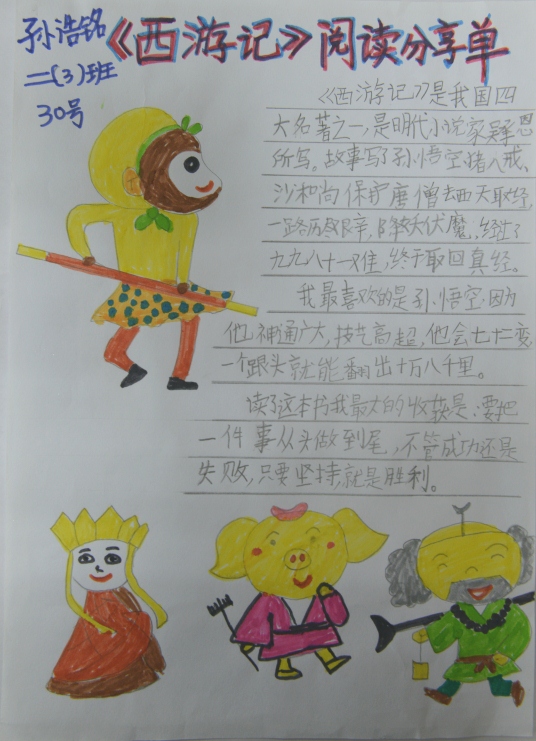 孙浩铭
二(3)班
30号
《西游记》阅读分享单
《西游记》是我国四
大名著之一,是明代小说家吴承恩
所写。故事写了孙悟空、猪八戒、
沙和尚保护唐僧去西天取经,
一路历尽艰辛,降妖伏魔,经过了
九九八十一难,终于取回真经。
我最喜欢的是孙悟空,因为
他神通广大,技艺高超,他会七十二变,
一个跟头就能翻出十万八千里。
读了这本书我最大的收获是:要把
一件事从头做到尾,不管成功还是
失败,只要坚持,就是胜利。